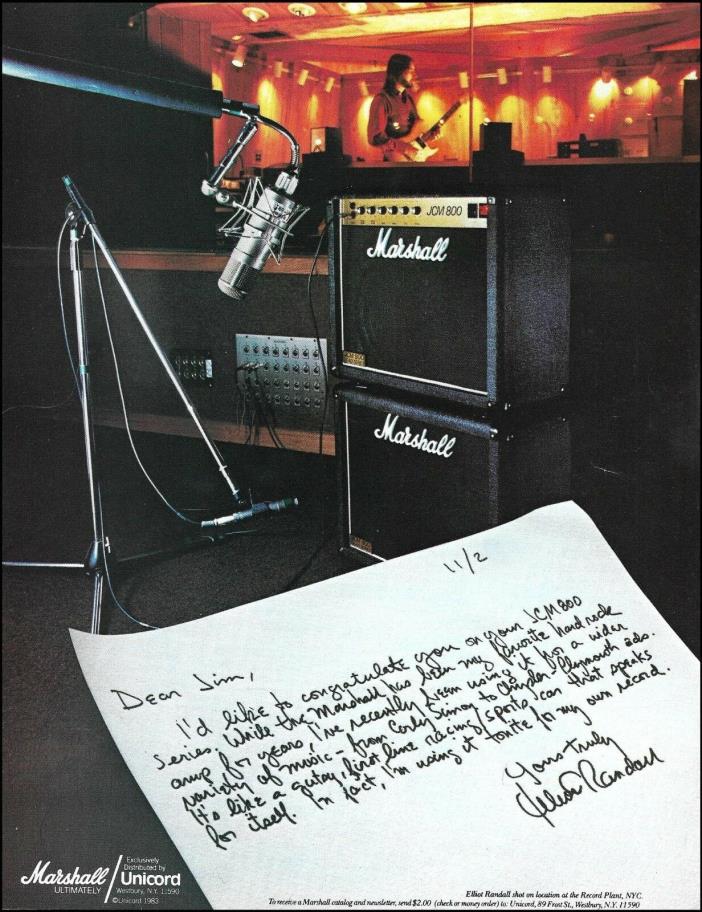 JCM 800
Marshall
Marshall
11/2
Dear Jim,
I'd like to congratulate you on your JCM 800
series. While the Marshall has been my favorite hard rock
amp for years, I've recently been using it for a wider
variety of music – from Carly Simon to Chrysler-Plymouth ads.
It's like a gutsy, first line racing/sports car that speaks
for itself. In fact, I'm using it tonite for my own record.
Yours truly
Elliot Randall
Marshall
ULTIMATELY
Exclusively
Distributed by
Unicord
Westbury, N.Y. 11590
©Unicord 1983
Elliot Randall shot on location at the Record Plant, NYC.
To receive a Marshall catalog and newsletter, send $2.00 (check or money order) to: Unicord, 89 Frost St., Westbury, N.Y. 11590